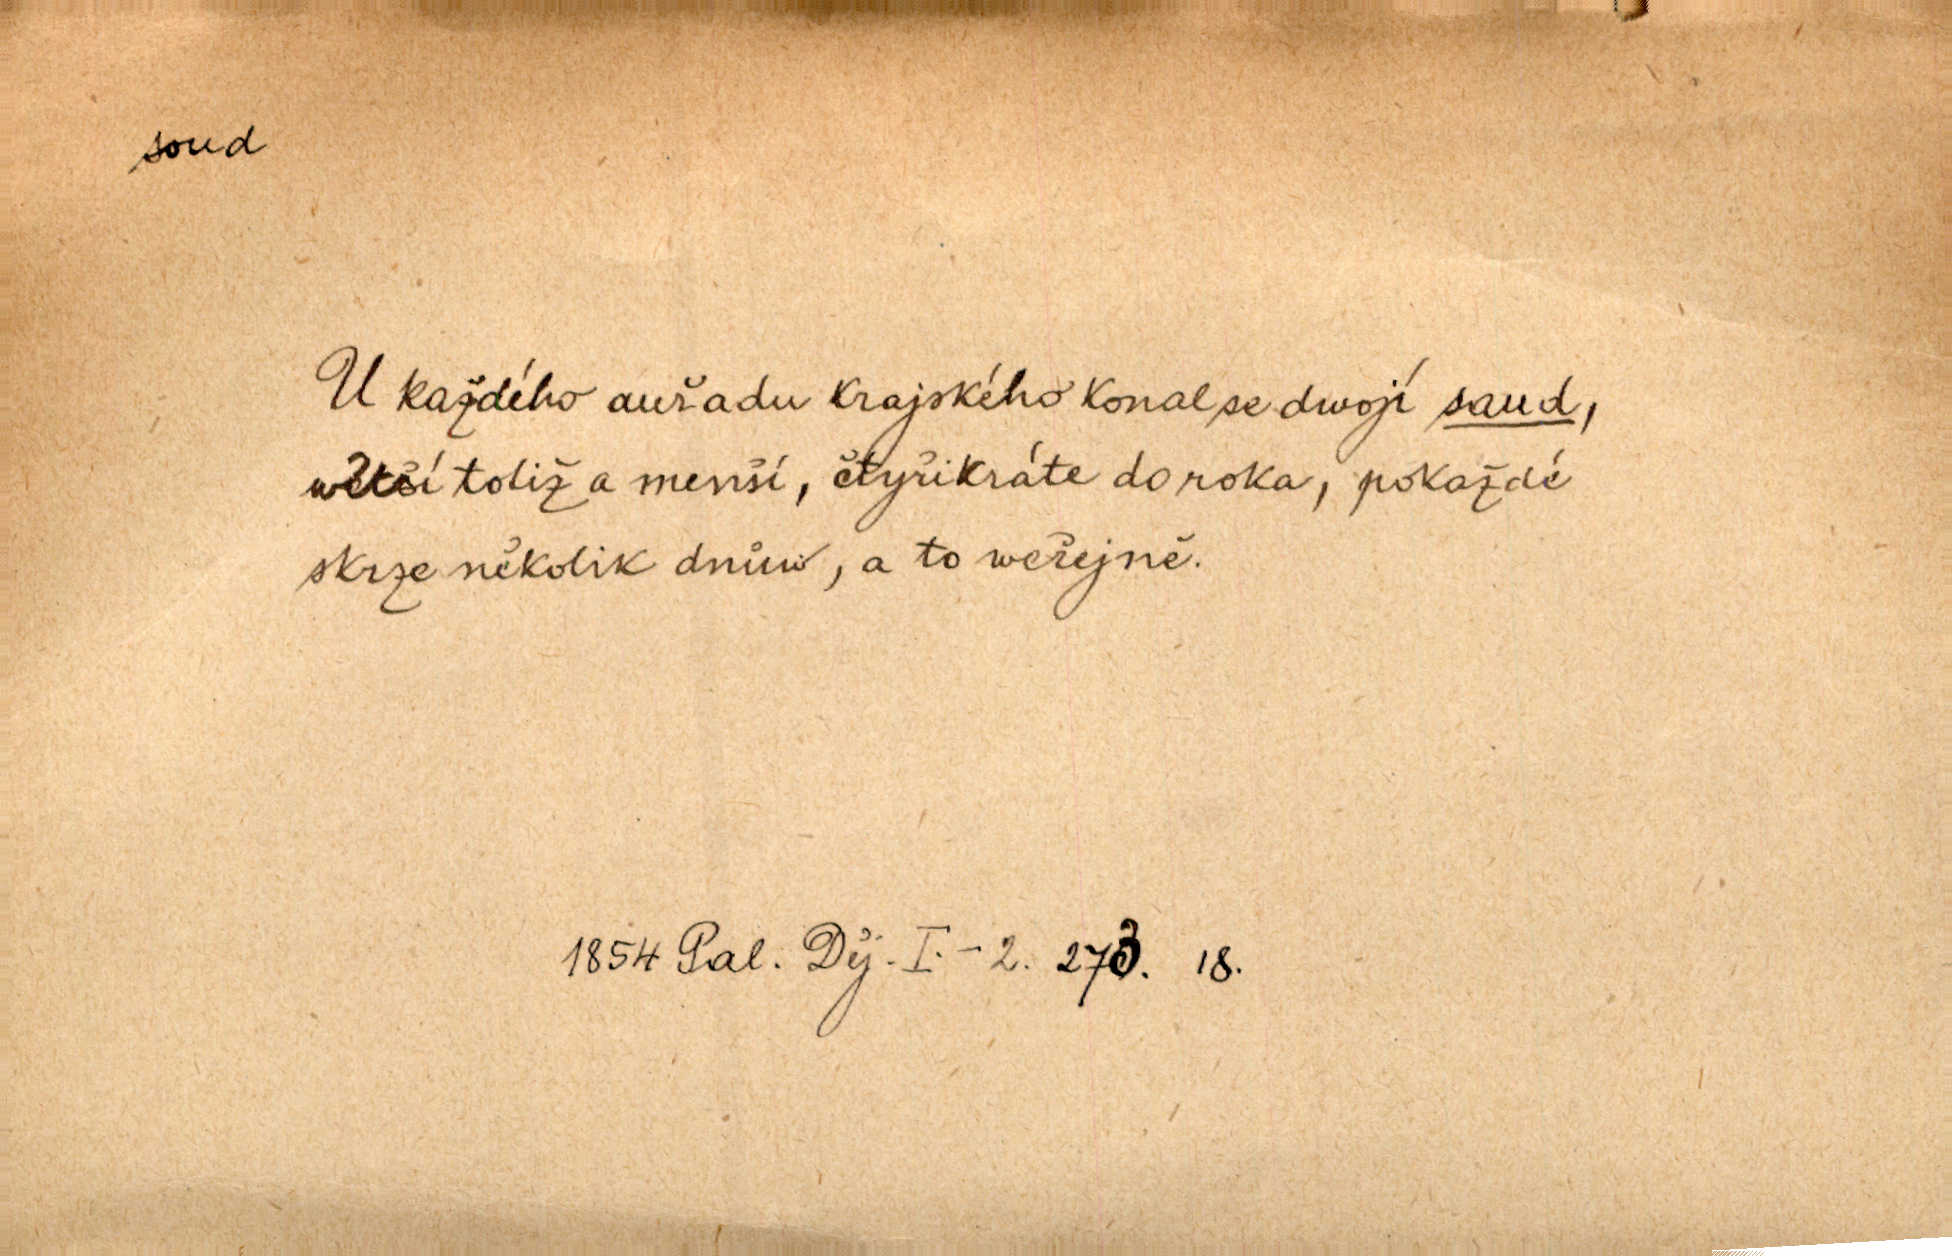 soud
U každého auřadu krajského konal se dwojí saud,
wětší toliž a menší, čtyřikráte do roka, pokaždé
skrze několik dnůw, a to weřejně.
1854 Pal. Děj. I.-2. 273. 18.